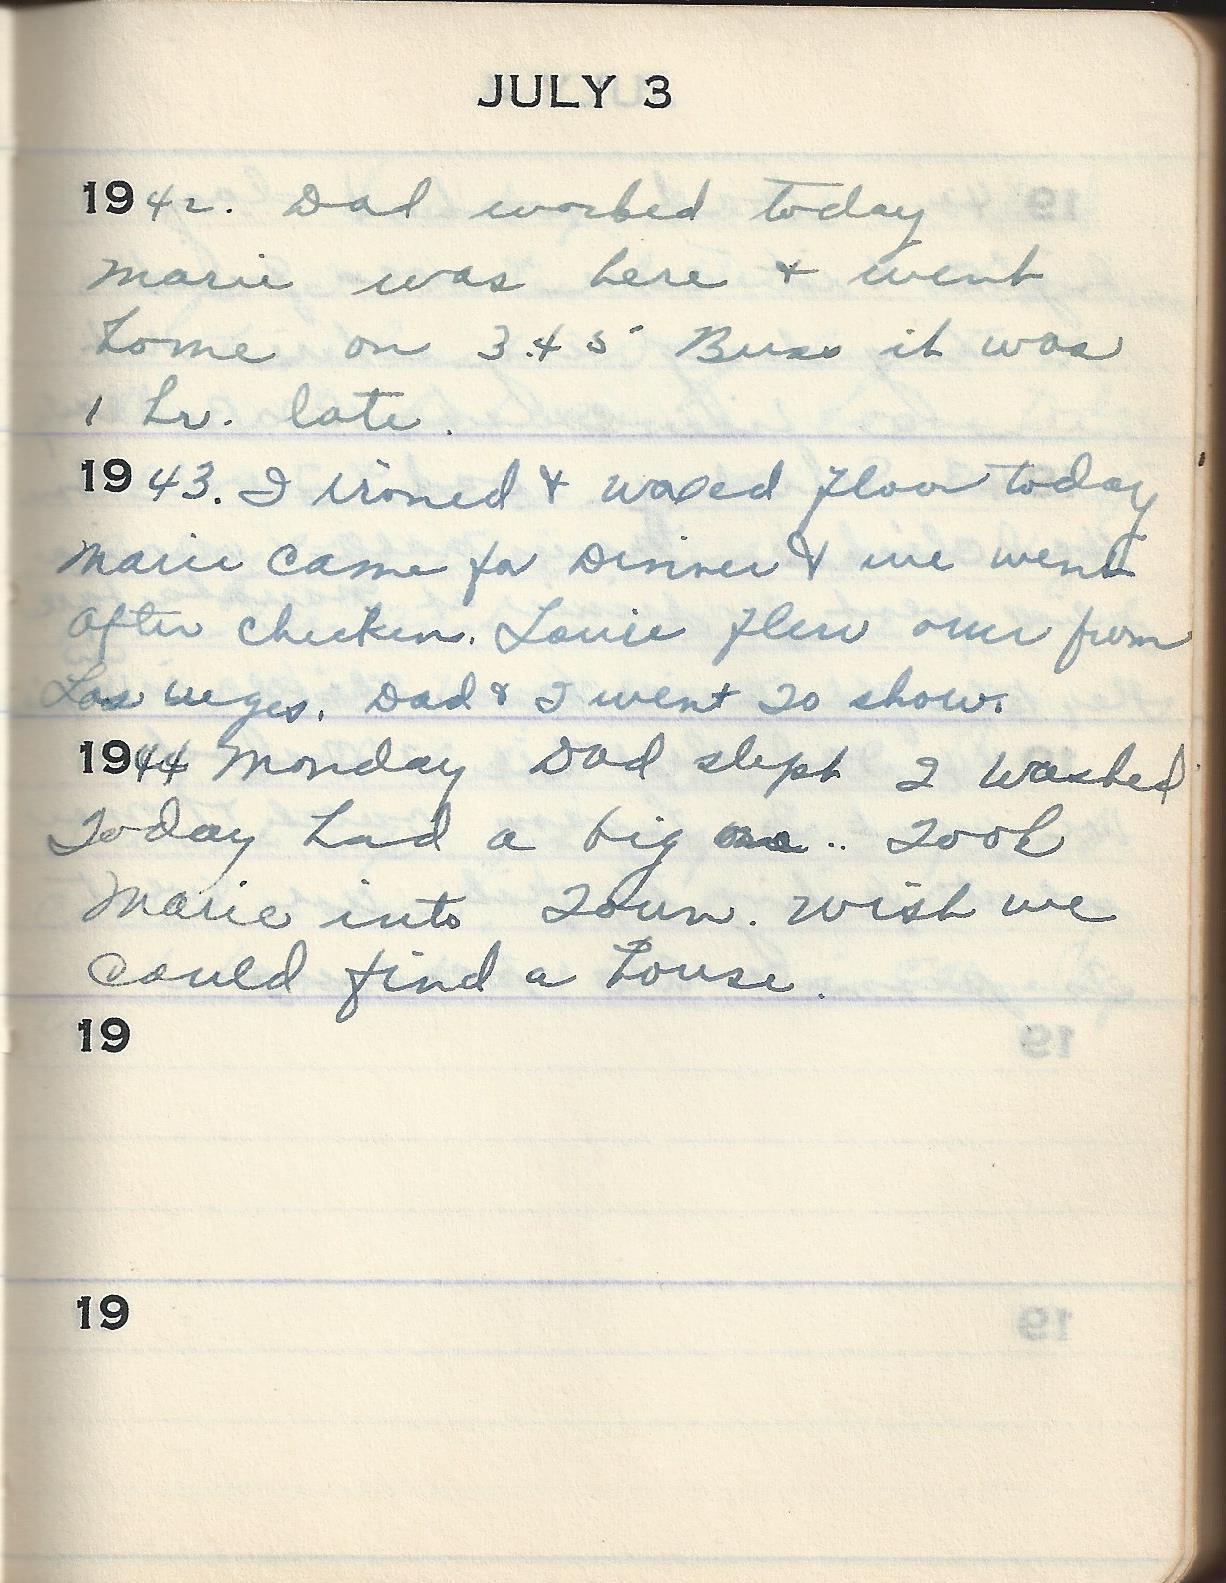 JULY 3
1942. Dad worked today
Marie was here & went
home on 3.45 Buss it was
1 hr. late.
1943. I ironed & waxed floor today
Marie came for Dinner & we went
after chicken. Louie flew over from
Las Veges. Dad & I went to show.
1944 Monday Dad slept I washed
Today had a big one .. Took
Marie into Town. Wish we
could find a house.
19
19